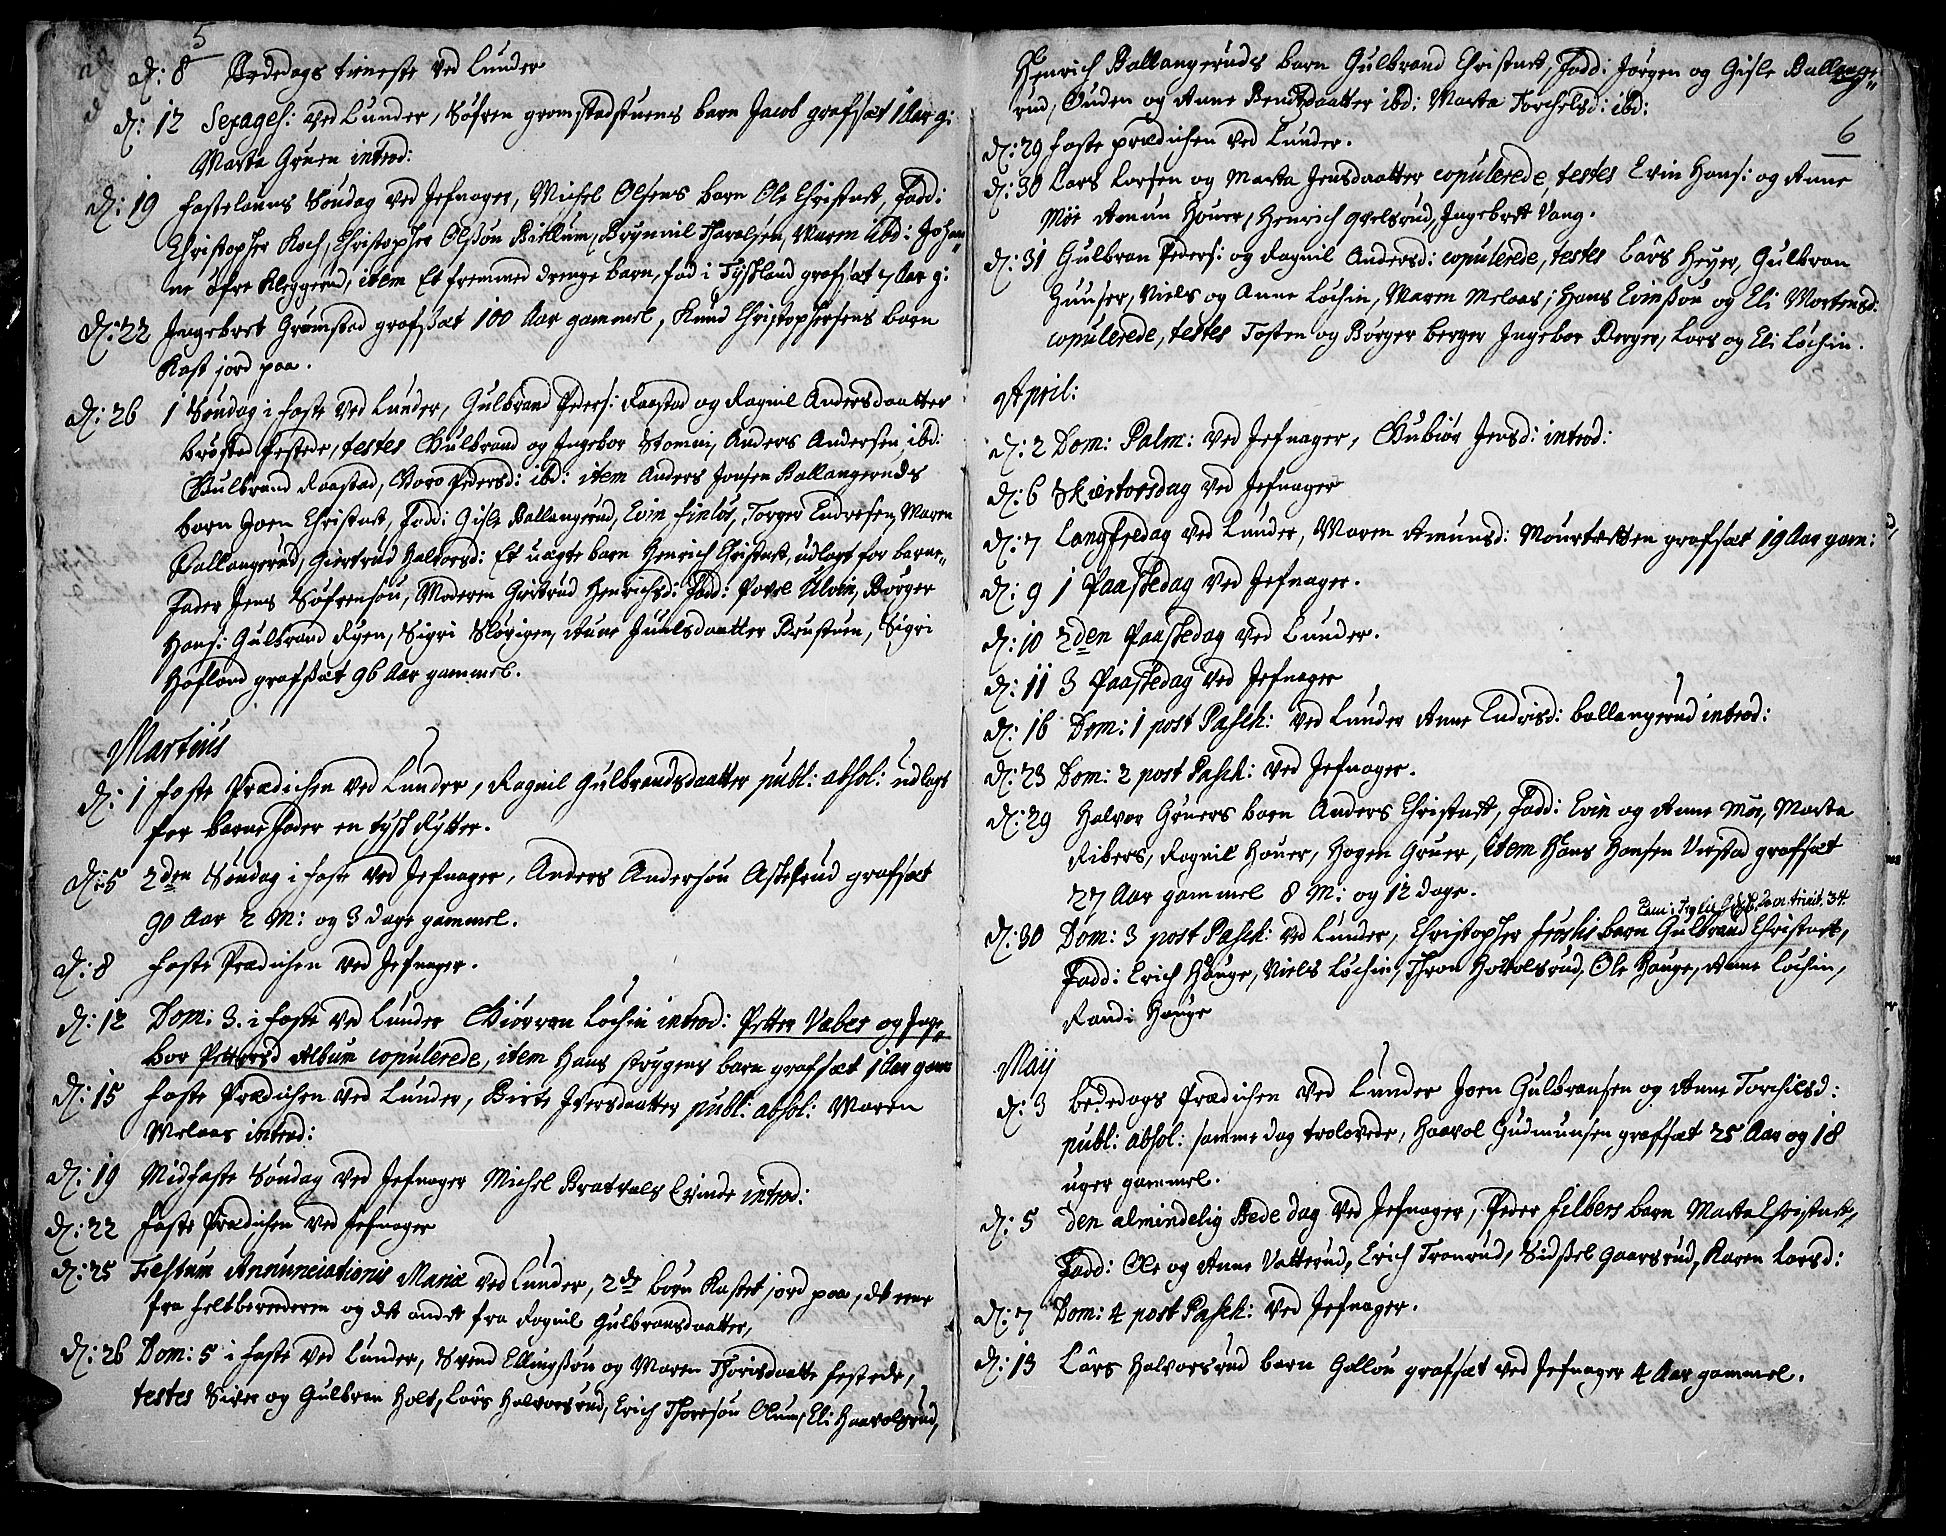 5
d: 8 Bededags tieneste ved Lunder
d: 12 Sexages: ved Lunder, Søfren gromstadstuens barn Jacob grafsæt 1 Aar g:
Marta Gruen introd:
d: 19 fastelauns Søndag ved Jefnager, Michel Olsens barn Ole Christnet, Fadd:
Christopher Koch, Christopher Olsøn Billum, Brynnil Tharalsen, Maren ibd: Johan„
ne öfre Kleggerud, item Et fremmed drenge barn, fød i Tyskland grafsæt 7 Aar g:
d: 22 Ingebret Gromstad grafsæt 100 Aar gammel, Knud Christophersens barn
Kast jord paa.
d: 26 1 Søndag i faste ved Lunder, Gulbrand Peders: Raastad og Ragnil Andersdaatter
festede, testes Gulbrand og Ingebor Stomni, Anders Andersen ibd:
Gulbrand Raastad, Goro Pedersd: ibd: item Anders Joensen Ballangeruds
barn Joen Christnet, Fadd: Gisle Ballangerud, Evin finlös, Torger Endresen, Maren
Ballangerud, Giertrud Halvorsd: Et uægte barn Henrich Christnet, udlagt for barne„
Fader Jens Søfrensøn, Moderen Giertrud Henrichsd: Fadd: Povel Ulvin, Börger
Hans: Gulbrand Ryen, Sigri Slövigen, Anne Juulsdaatter Brustuen, Sigri
Hofland grafsæt 96 Aar gammel.
Martius
d: 1 faste Prædichen ved Lunder, Ragnil Gulbrandsdaatter publ: absol: udlagt
for barne Fader en tysk Rytter.
d: 5 2den Søndag i faste ved Jefnager, Anders Andersøn Askerud grafsæt
90 Aar 2 M: og 3 dage gammel.
d: 8 faste Prædichen ved Jefnager.
d: 12 Dom: 3. i faste ved Lunder Giörren Löchin introd: Petter Væber og Inge„
bor Pettersd Album copulerede, item Hans Strygens barn grafsæt 1 Aar gam
d: 15 faste Prædichen ved Lunder, Birte Iversdaatter publ: absol: Maren
Melaas introd:
d: 19 Midfaste Søndag ved Jefnager Michel Bratvals Qvinde introd:
d: 22 faste Prædichen ved Jefnager
d: 25 Festum Annunciationis Mariæ ved Lunder, 2de börn Kastet jord paa, det eene
fra feltberederen og det andet fra Ragnil Gulbransdaatter,
d: 26 Dom: 5 i faste ved Lunder, Svend Ellingsøn og Maren Thorisdaatter festede,
testes Siver og Gulbran Holt, Lars Halvorsrud, Erich Thoresøn Olum, Eli Haavolsrud,
Henrich Ballangeruds barn Gulbrand Christnet, Fadd: Jörgen og Gisle Ballange„
rud, Guden og Anne Bendtsdaatter ibd: Marta Torchelsd: ibd:
6
d: 29 faste prædichen ved Lunder.
d: 30 Lars Larsen og Marta Jensdaatter copulerede, testes Evin Hans: og Anne
Möe Amun Houer, Henrich Gvelsrud, Ingebret Vang.
d: 31 Gulbran Peders: og Ragnil Andersd: copulerede, testes Lars Heyer, Gulbran
Huuser, Niels og Anne Löchin, Maren Melaas; Hans Evinsøn og Eli Mortensd:
copulerede, testes Tosten og Börger berger Ingebor Berger, Lars og Eli Löchin.
April:
d: 2 Dom: Palm: ved Jefnager, Gubiör Jensd: introd:
d: 6 Skiertorsdag ved Jefnager
d: 7 Langfredag ved Lunder, Maren Amunsd: Mourtvetten grafsæt 19 Aar gam:
d: 9 1 Paaskedag ved Jefnager.
d: 10 2den Paaskedag ved Lunder.
d: 11 3 Paaskedag ved Jefnager
d: 16 Dom: 1 post Pasch: ved Lunder Anne Endrisd: ballangerud introd:
d: 23 Dom: 2 post Pasch: ved Jefnager.
d: 29 Halvor Gruers barn Anders Christnet, Fadd: Evin og Anne Möe, Marta
Ribers, Ragnil Houer, Hogen Gruer, item Hans Hansen Virstad grafsæt
27 Aar gammel 8 M: og 12 dage.
d: 30 Dom: 3 post Pasch: ved Lunder, Christopher frøshis barn Gulbrand Christnet,
Fadd: Erich Houge, Niels Löchin, Thron Hovolsrud, Ole Houge, Anne Löchin,
Randi Houge
Maij
d: 3 bededags Prædichen ved Lunder Joen Gulbransen og Anne Torchilsd:
publ: absol: samme dag trolovede, Haavol Gudmunsen grafsæt 25 Aar og 18
uger gammel.
d: 5 den almindelig Bede dag ved Jefnager, Peder filbers barn Marta Christnet,
Fadd: Ole og Anne Vatterud, Erich Tronrud, Sidsel Gaarsrud, Karen Larsd:
d: 7 Dom: 4 post Pasch: ved Jefnager.
d: 13 Lars Halvorsrud barn Gollou grafsæt ved Jefnager 4 Aar gammel.